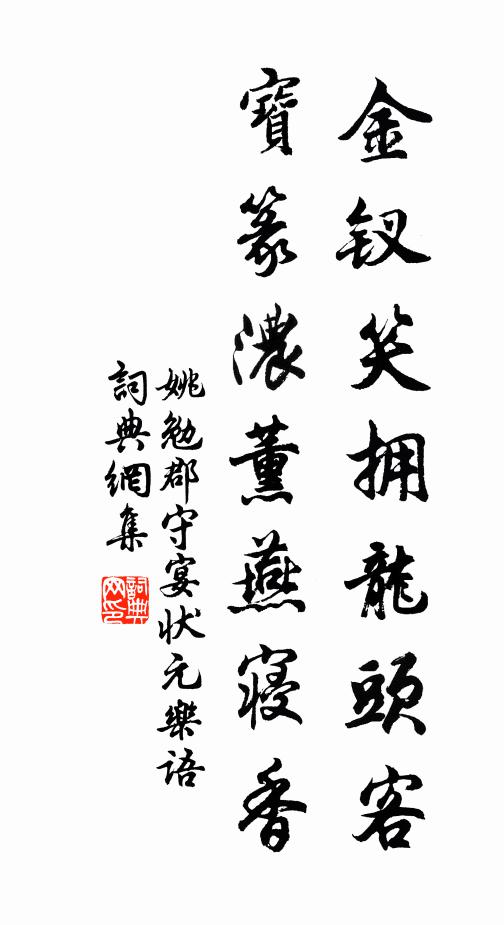 金钗笑拥龍頭客
寶篆濃薰燕寢香
姚勉郡守宴状元樂語
詞典網集
詞典網印